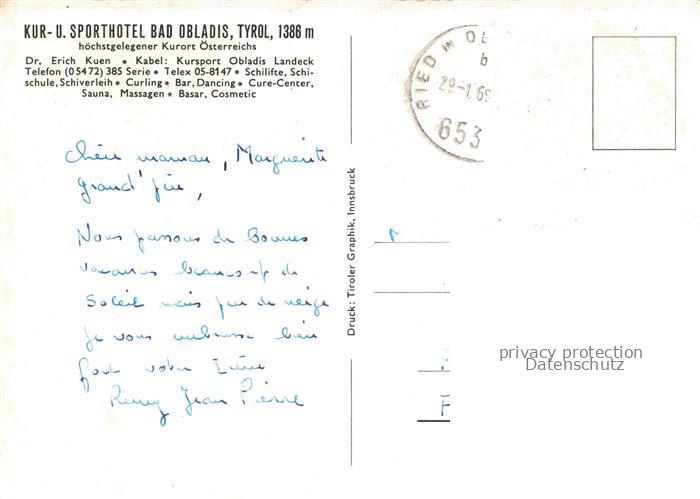 KUR- U. SPORTHOTEL BAD OBLADIS, TYROL, 1386 m
höchstgelegener Kurort Österreichs
Dr. Erich Kuen * Kabel: Kursport Obladis Landeck
Telefon (05472) 385 Serie * Telex 05-8147 * Schilifte, Schi-
schule, Schiverleih * Curling * Bar, Dancing * Cure-Center,
Sauna, Massagen * Basar, Cosmetic
Chère maman, Marguerite
Grand'père,
Nous passons de bonnes
vacances beaucoup de
Soleil mais peu de neige
Je vous embrasse bien
fort votre
Remy Jean Pierre
Druck: Tiroler Graphik, Innsbruck
RIED
29-1.69
653
privacy protection
Datenschutz